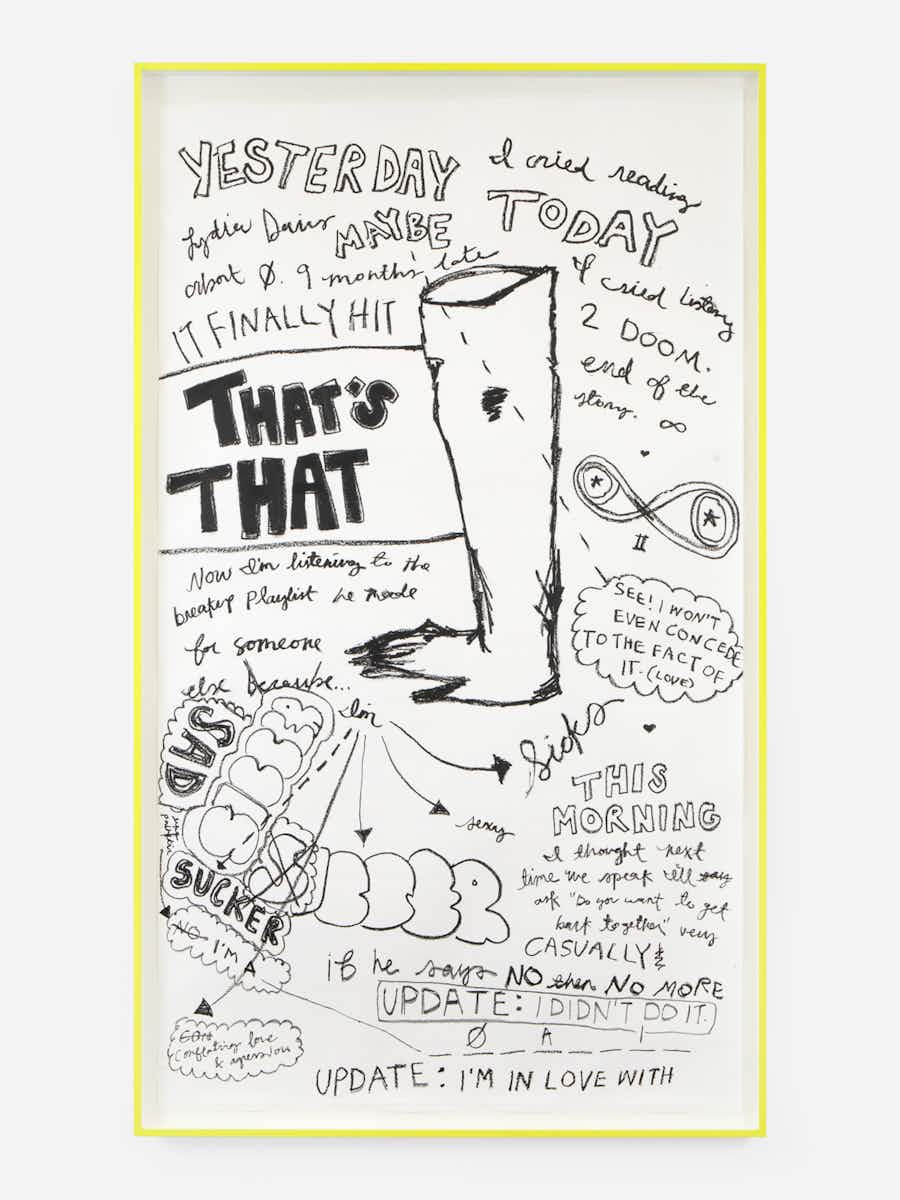 YESTERDAY
I cried reading
Lydia Davis
MAYBE
about Ø. 9 months late
IT FINALLY HIT
TODAY
I cried listening
2 DOOM.
end of the
story. ∞
THAT'S
THAT
II
SEE! I WON'T
EVEN CONCEDE
TO THE FACT OF
IT. (LOVE)
Now I'm listening to the
breakup playlist he made
for someone
else because...
I'm
sicks
sexy
SAD
SUCKER
NO I'M
A
conflating love
&
THIS
MORNING
I thought next
time we speak I'll say
ask "Do you want to get
back together" very
CASUALLY &
if he says NO then NO MORE
UPDATE: I DIDN'T DO IT.
Ø A I
UPDATE: I'M IN LOVE WITH